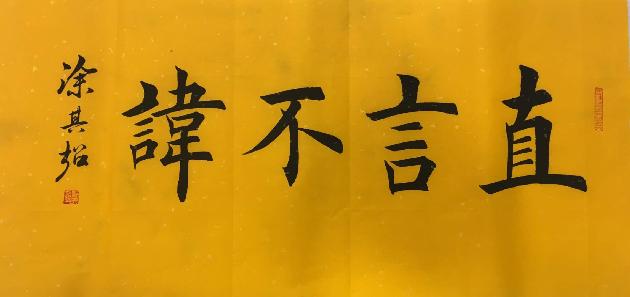 直言不諱
涂其超